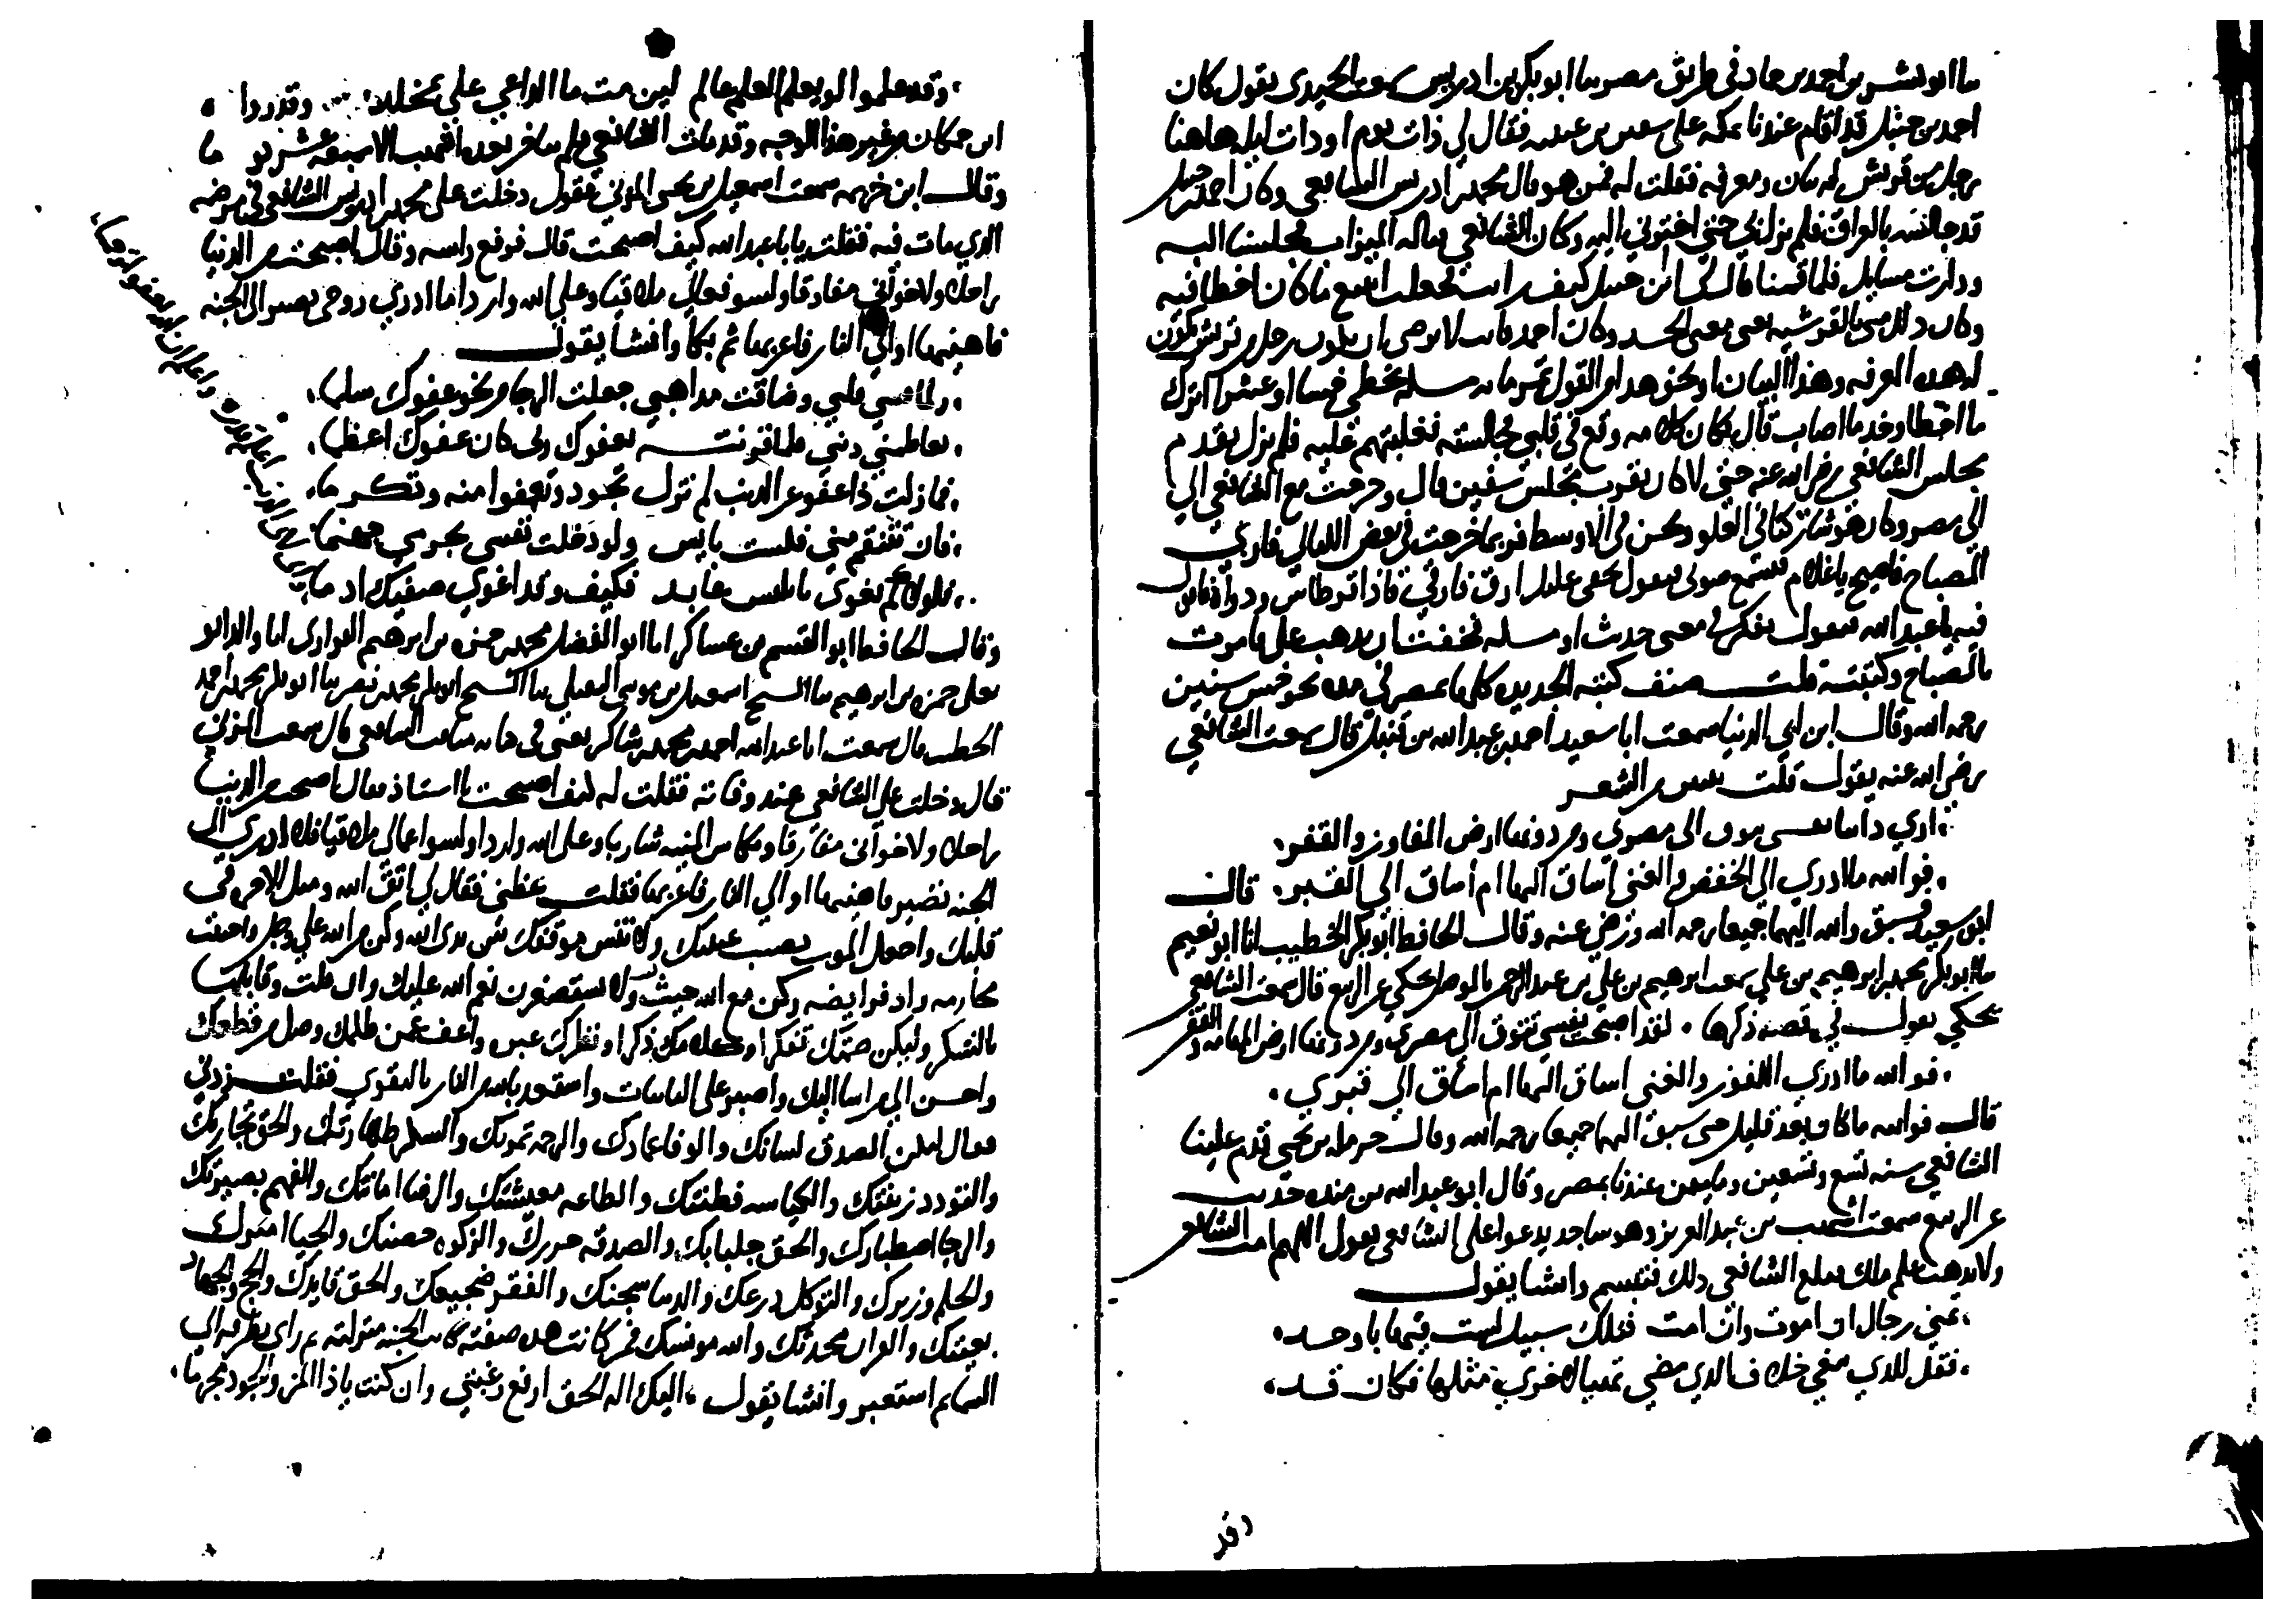 ثنا ابو بشر بن احمد بن حماد في طريق مصر ثنا ابو بكر بن ادريس سمعت الحميدي يقول كان
احمد بن حنبل قد اقام عندنا بمكه على سفين بن عيينه فقال لي ذات يوم او ذات ليله هاهنا
رجل من قريش له بيان ومعرفه فقلت له فمن هو قال محمد بن ادريس الشافعي وكان احمد بن حنبل
قد جالسه بالعراق فلم يزل بي حتى اجترني اليه وكان الشافعي قباله الميزاب فجلسنا اليه
ودارت مسايل فلما قمنا قال لي ابن حنبل كيف رايت فجعلت اتتبع ما كان اخطا فيه
وكان ذلك مني بالقرشيه يعني من الحسد وكان احمد قال لا ترضى ان يكون رجل من قريش يكون
له هذه المعرفه وهذا البيان او نحو هذا من القول تمر مايه مسله يخطي خمسا او عشرا اترك
ما اخطا وخذ ما اصاب قال فكان كلامه وقع في قلبي فجالسته فغلبتهم عليه فلم نزل نقدم
مجلس الشافعي رضي الله عنه حتى لا كان بقرب مجلس سفين قال وخرجت مع الشافعي الى
الى مصر وكان هو ساكنا في العلو ونحن في الاوسط فربما خرجت في بعض الليالي فارى
المصباح فاصيح يا غلام فيسمع صوتي فيقول بحقي عليك ارق فارقى فاذا قرطاس ودواة فاقول
مه يا عبد الله فيقول تفكرت في معنى حديث او مسله فخفت ان يذهب علي فامرت
بالمصباح وكتبته قلت صنف كتبه الجديده كلها بمصر في مده نحو خمس سنين
رحمه الله وقال ابن ابي الدنيا سمعت ابا سعيد احمد بن عبد الله بن قنبل قال سمعت الشافعي
رضي الله عنه يقول قلت بيتين من الشعر
ارى نفسي تتوق الى مصر ومن دونها ارض المفاوز والقفر
فوالله ما ادري الى الخفض والغنى اساق اليها ام اساق الى القبر قال
ابو سعيد فسيق والله اليهما جميعا رحمه الله ورضي عنه وقال الحافظ ابو بكر الخطيب انا ابو نعيم
ثنا ابو بكر محمد بن ابراهيم بن علي سمعت ابرهيم بن علي بن عبد الرحيم بالموصل يحكي عن الربيع قال سمعت الشافعي
يحكي يقول في قصه ذكرها لقد اصبحت نفسي تتوق الى مصر ومن دونها ارض المهامه والقفر
فوالله ما ادري اللفوز والغنى اساق اليها ام اساق الى قبري
قال فوالله ما كان بعد قليل حتى سيق اليهما جميعا رحمه الله وقال حرمله بن يحيى قدم علينا
الشافعي سنه تسع وتسعين ومايه عندنا بمصر وقال ابو عبد الله بن منده حديث
عن الربيع سمعت اشهب بن عبد العزيز وهو ساجد يدعوا على الشافعي يقول اللهم امت الشافعي
ولا يذهب علم مالك فبلغ الشافعي ذلك فتبسم وانشا يقول
تمنى رجال ان اموت وان امت فتلك سبيل لست فيها باوحد
فقل للذي يبغي خلاف الذي مضى تهيا لاخرى مثلها فكان قد
وقد
وقد علموا لو ينفع العلم عالم لين مت ما الداعي علي بمخلد وقد روا
ابن حمكان من غير هذا الوجه وقد مات الشافعي فلم يتاخر بعده اشهب الا سبعه عشر يوما
وقال ابن خزيمه سمعت اسمعيل بن يحيى المزني يقول دخلت على محمد بن ادريس الشافعي في مرضه
الذي مات فيه فقلت يا ابا عبد الله كيف اصبحت قال فرفع راسه وقال اصبحت من الدنيا
راحلا ولاخواني مفارقا ولسو فعالي ملاقيا وعلى الله واردا ما ادري روحي تصير الى الجنه
فاهنيها او الى النار فاعزيها ثم بكا وانشا يقول
ولما قسى قلبي وضاقت مذاهبي جعلت الرجا مني نحو عفوك سلما
تعاظمني ذنبي فلما قرنته بعفوك ربي كان عفوك اعظما
فما زلت ذا عفو عن الذنب لم تزل تجود وتعفوا منه وتكرما
فان تنتقم مني فلست بايس ولو دخلت نفسي بجرمي جهنما
فلولاك لم يغوى بابليس عابد فكيف وقد اغوى صفيك ادما
وقال الحافظ ابو القسم بن عساكر انا ابو الفضل محمد بن حمزه بن ابرهيم انا والدي ابو
يعلى حمزه بن ابرهيم ثنا الشيخ اسمعيل بن موسى ثنا الشيخ ابو بكر محمد بن نصر ثنا ابو بكر محمد بن احمد
الخطيب قال سمعت ابا عبد الله احمد بن محمد بن شاكر يعني في كتابه مناقب الشافعي قال سمعت المزني
قال دخلت على الشافعي عند وفاته فقلت له كيف اصبحت يا استاذ فقال اصبحت من الدنيا
راحلا ولاخواني مفارقا وبكاس المنيه شاربا وعلى الله واردا ولسو اعمالي ملاقيا فلا ادري الى
الجنه تصير فاهنيها او الى النار فاعزيها فقلت عظني فقال لي اتق الله ومثل الاخره في
قلبك واجعل الموت نصب عينيك ولا تنس موقفك بين يدي الله وكن من الله على وجل واجتنب
محارمه واد فرايضه وكن مع الله حيث كنت ولا تستصغرن نعم الله عليك وان قلت وقابلها
بالشكر وليكن صمتك تفكرا وكلامك ذكرا ونظرك عبره واعف عمن ظلمك وصل من قطعك
واحسن الى من اسا اليك واصبر على النايبات واستعذ بالله من النار بالتقوى فقلت زدني
فقال ليكن الصدق لسانك والوفا عمادك والرحمه ثمرتك والشكر طهارتك والحق تجارتك
والتودد زينتك والكياسه فطنتك والطاعه معيشتك والرضا امانتك والفهم بصيرتك
والرجا اصطبارك والحق جلبابك والصدقه حرزك والزكوه حصنك والحيا اميرك
والحلم وزيرك والتوكل درعك والدنيا سجنك والفقر ضجيعك والحق قايدك والحج والجهاد
بغيتك والقران محدثك والله مونسك فمن كانت هذه صفته كانت الجنه منزلته ثم رمى بطرفه الى
السما ثم استعبر وانشا يقول اليك اله الحق ارفع رغبتي وان كنت يا ذا المن والجود مجرما